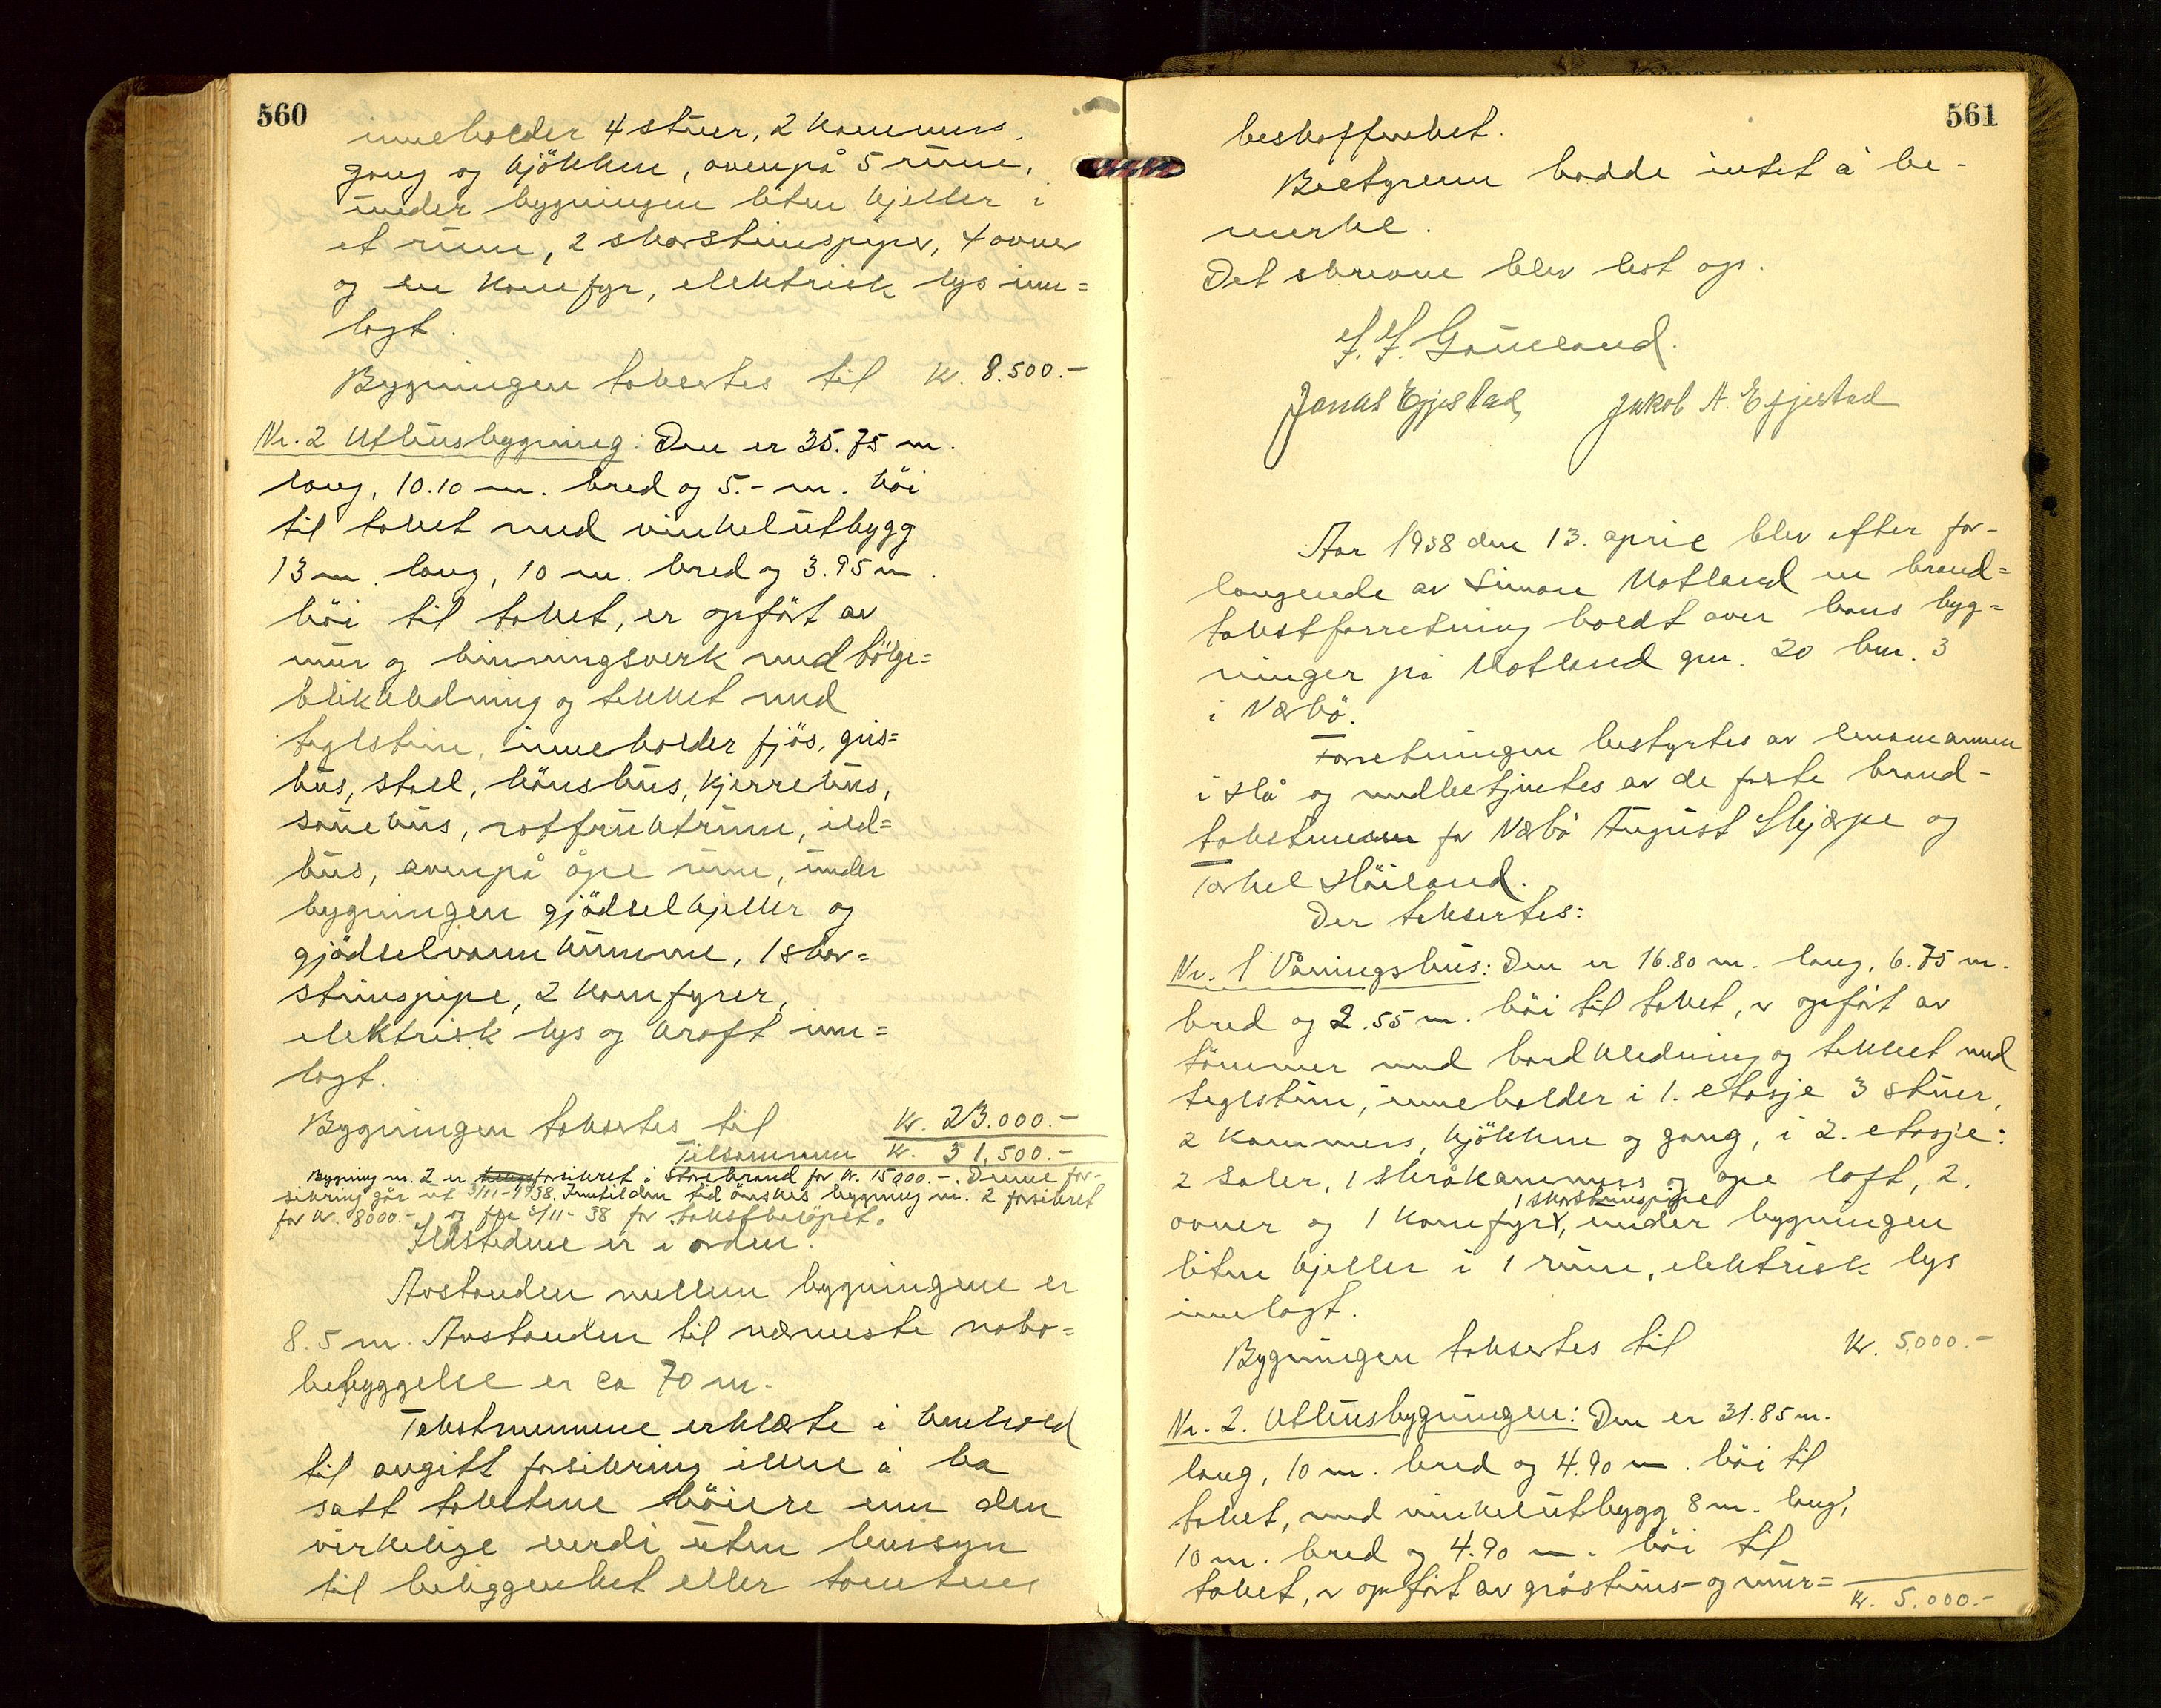 560
inneholder 4 stuer, 2 kammers,
gang og kjökken, ovenpå 5 rum,
under bygningen liten kjeller i
et rum, 2 skorstenspiper, 4 ovner
og en komfyr, elektrisk lys inn=
lagt.
Bygningen taksertes til kr. 8.500.-
Nr. 2 Uthusbygning: Den er 35.75 m.
lang, 10.10 m. bred og 5.- m. höi
til taket med vinkelutbygg
13 m. lang, 10 m. bred og 3.95 m.
höi til taket, er opfört av
mur og binningsverk med bölge=
blikkledning og tekket med
teglsten, inneholder fjös, gris=
hus, stall, hönshus, kjerrehus,
sauehus, rotfruktrum, ild=
hus, ovenpå åpe rum, under
bygningen gjödselkjeller og
gjödselvannkumme, 1 skor=
stenspipe, 2 komfyrer,
elektrisk lys og kraft inn=
lagt.
Bygningen taksertes til kr. 23.000.-
Tilsammen kr. 31,500.-
Bygning nr. 2 er forsikret i Storebrand for kr. 15,000.-. Denne for-
sikring går ut 3/11-1938. Inntil den tid önskes bygning nr. 2 forsikret
for kr. 8000.- og fra 3/11-38 for takstbelöpet.
Ildstedene er i orden.
Avstanden mellem bygningene er
8.5 m. Avstanden til nærmeste nabo=
bebyggelse er ca 70 m.
Takstmennene erklærte i henhold
til avgitt forsikring ikke å ha
satt takstene höiere enn den
virkelige verdi uten hensyn
til beliggenhet eller tomtens
561
beskaffenhet.
Bestyreren hadde intet å be-
merke.
Det skrevne blev lest op.
F. F. Gauseland.
Jonas Egjestad, Jakob A. Egjestad
Aar 1938 den 13. april blev efter for-
langende av Simon Motland en brand=
takstforretning holdt over hans byg=
ninger på Motland gnr. 20 bnr. 3
i Nærbö.
Forretningen bestyrtes av lensmannen
i Hå og medbetjentes av de faste brand-
takstmenn for Nærbö August Skjærpe og
Torkel Höiland.
Der taksertes:
Nr. 1 Våningshus: Den er 16.80 m. lang, 6.75 m.
bred og 2.55 m. höi til taket, er opfört av
tömmer med bordkledning og tekket med
teglsten, inneholder i 1. etasje 3 stuer,
2 kammers, kjökken og gang, i 2. etasje:
2 saler, 1 skråkammers og ope loft, 2,
1 skorstenspipe
ovner og 1 komfyr, under bygningen
liten kjeller i 1 rum, elektrisk lys
innlagt.
Bygningen taksertes til kr. 5.000.-
Nr. 2. Uthusbygningen: Den er 31.85 m.
lang, 10 m. bred og 4.90 m. höi til
taket, med vinkelutbygg 8 m. lang,
10 m. bred og 4.90 m. höi til
taket, er opfört av gråstens- og mur=
kr. 5.000.-